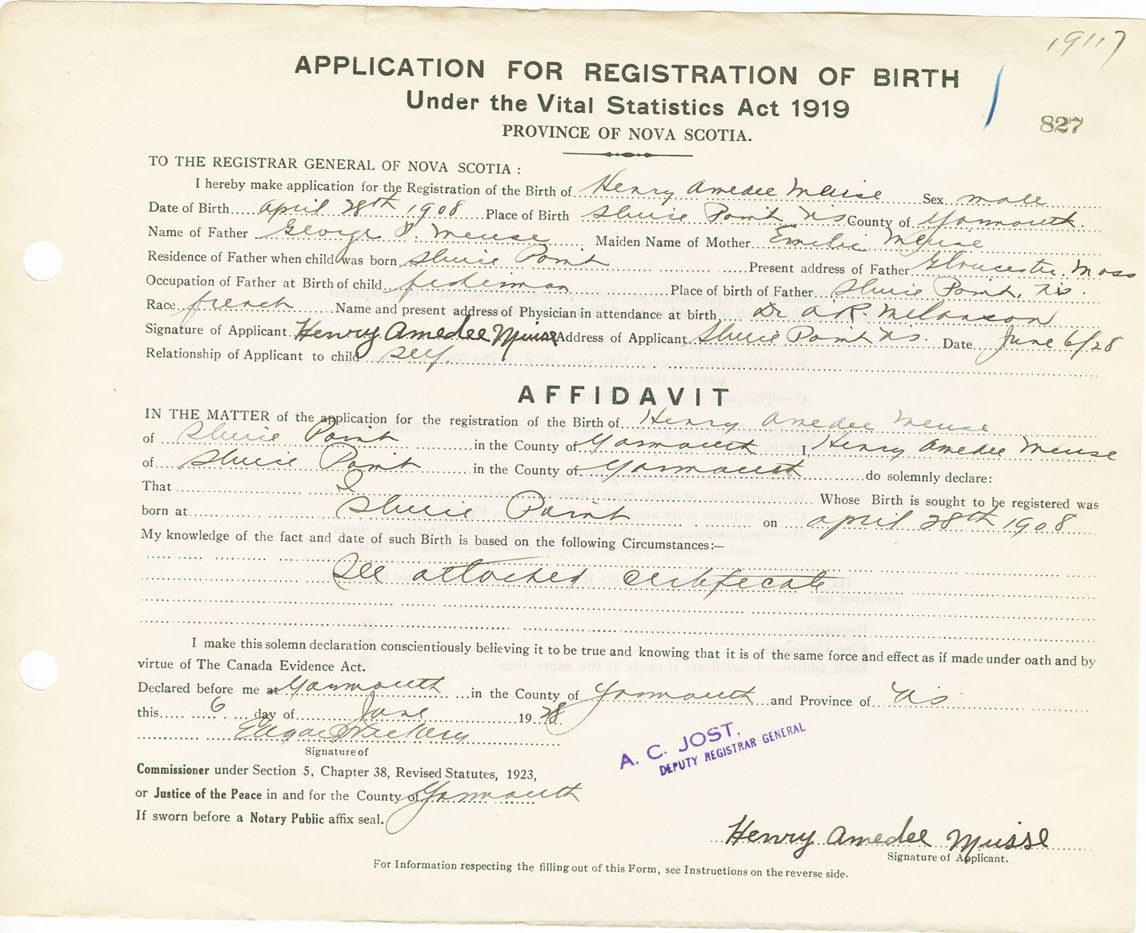 19117
APPLICATION FOR REGISTRATION OF BIRTH
Under the Vital Statistics Act 1919
827
PROVINCE OF NOVA SCOTIA.
TO THE REGISTRAR GENERAL OF NOVA SCOTIA :
I hereby make application for the Registration of the Birth of Henry Amedee Meuse Sex male
Date of Birth April 28th 1908 Place of Birth Sluice Point NS County of Yarmouth.
Name of Father George P. Meuse Maiden Name of Mother Emilie Meuse
Residence of Father when child was born Sluice Point Present address of Father Gloucester, Mass
Occupation of Father at Birth of child fisherman Place of birth of Father Sluice Point, NS.
Race french Name and present address of Physician in attendance at birth, Dr A R. Melanson
Signature of Applicant Henry Amedee Muise Address of Applicant Sluice Point NS. Date June 6/28
Relationship of Applicant to child self
AFFIDAVIT
IN THE MATTER of the application for the registration of the Birth of Henry Amedee Meuse
of Sluice Point in the County of Yarmouth I, Henry Amedee Meuse
of Sluice Point in the County of Yarmouth do solemnly declare:
That I Whose Birth is sought to be registered was
born at Sluice Point on April 28th 1908
My knowledge of the fact and date of such Birth is based on the following Circumstances:—
See attached certificate
I make this solemn declaration conscientiously believing it to be true and knowing that it is of the same force and effect as if made under oath and by
virtue of The Canada Evidence Act.
Declared before me at Yarmouth in the County of Yarmouth and Province of NS
this 6 day of June 1928
Signature of
A. C. JOST,
DEPUTY REGISTRAR GENERAL
Commissioner under Section 5, Chapter 38, Revised Statutes, 1923,
or Justice of the Peace in and for the County of Yarmouth
If sworn before a Notary Public affix seal.
Henry Amedee Muise
Signature of Applicant.
For Information respecting the filling out of this Form, see Instructions on the reverse side.